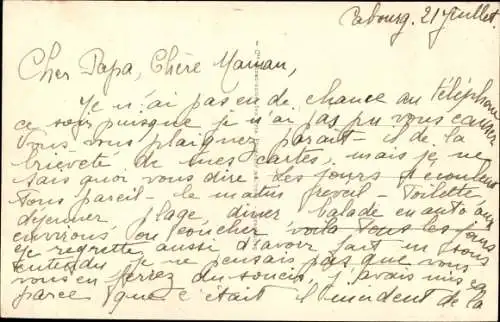 Cabourg. 21 Juillet.
Cher Papa, Chère Maman,
Je n'ai pas eu de chance au téléphone
ce soir puisque je n'ai pas pu vous causer
Vous vous plaignez paraît-il de la
brièveté de mes cartes, mais je ne
sais quoi vous dire. Les jours s'écoulent
tous pareil - le matin réveil - toilette
déjeuner plage, diner balade en auto aux
environs ou coucher voilà tous les jours
Je regrette aussi d'avoir fait un sous
entendu je ne pensais pas que vous
vous en feriez du soucis, j'avais mis ça
parce que c'était il incident de la